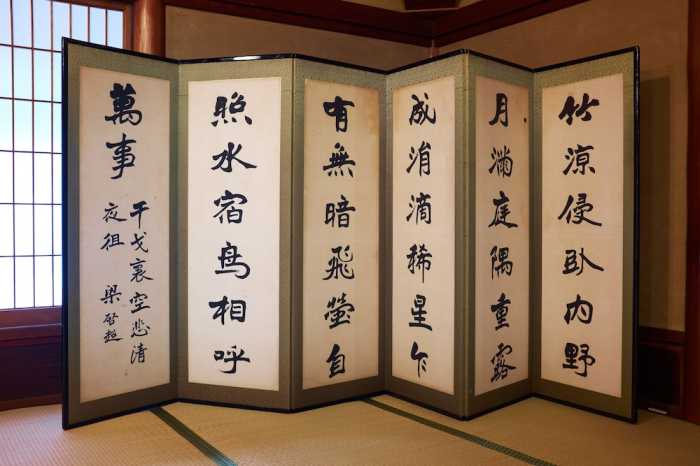 竹涼侵卧内野
月滿庭隅重露
成涓滴稀星乍
有無暗飛螢自
照水宿鳥相呼
萬事
干戈裏空悲清
夜徂 梁啟超